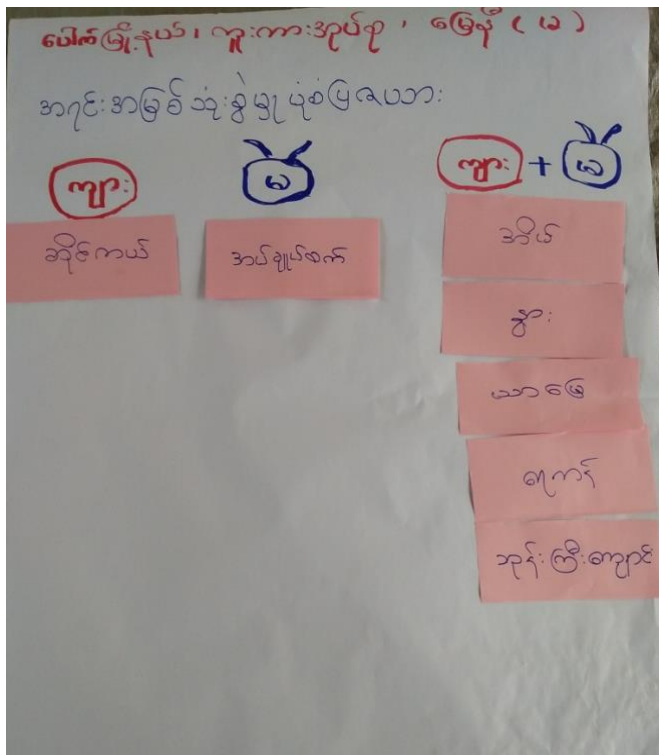 ပေါက်မြို့နယ်၊ ကူးကားအုပ်စု ၊ မြေနီ ( မ )
အရင်းအမြစ်သုံးစွဲမှုပုံစံပြဇယား
ကျား
မ
ကျား + မ
ဆိုင်ကယ်
အပ်ချုပ်စက်
အိမ်
နွား
ယာမြေ
ရေကန်
ဘုန်းကြီးကျောင်း